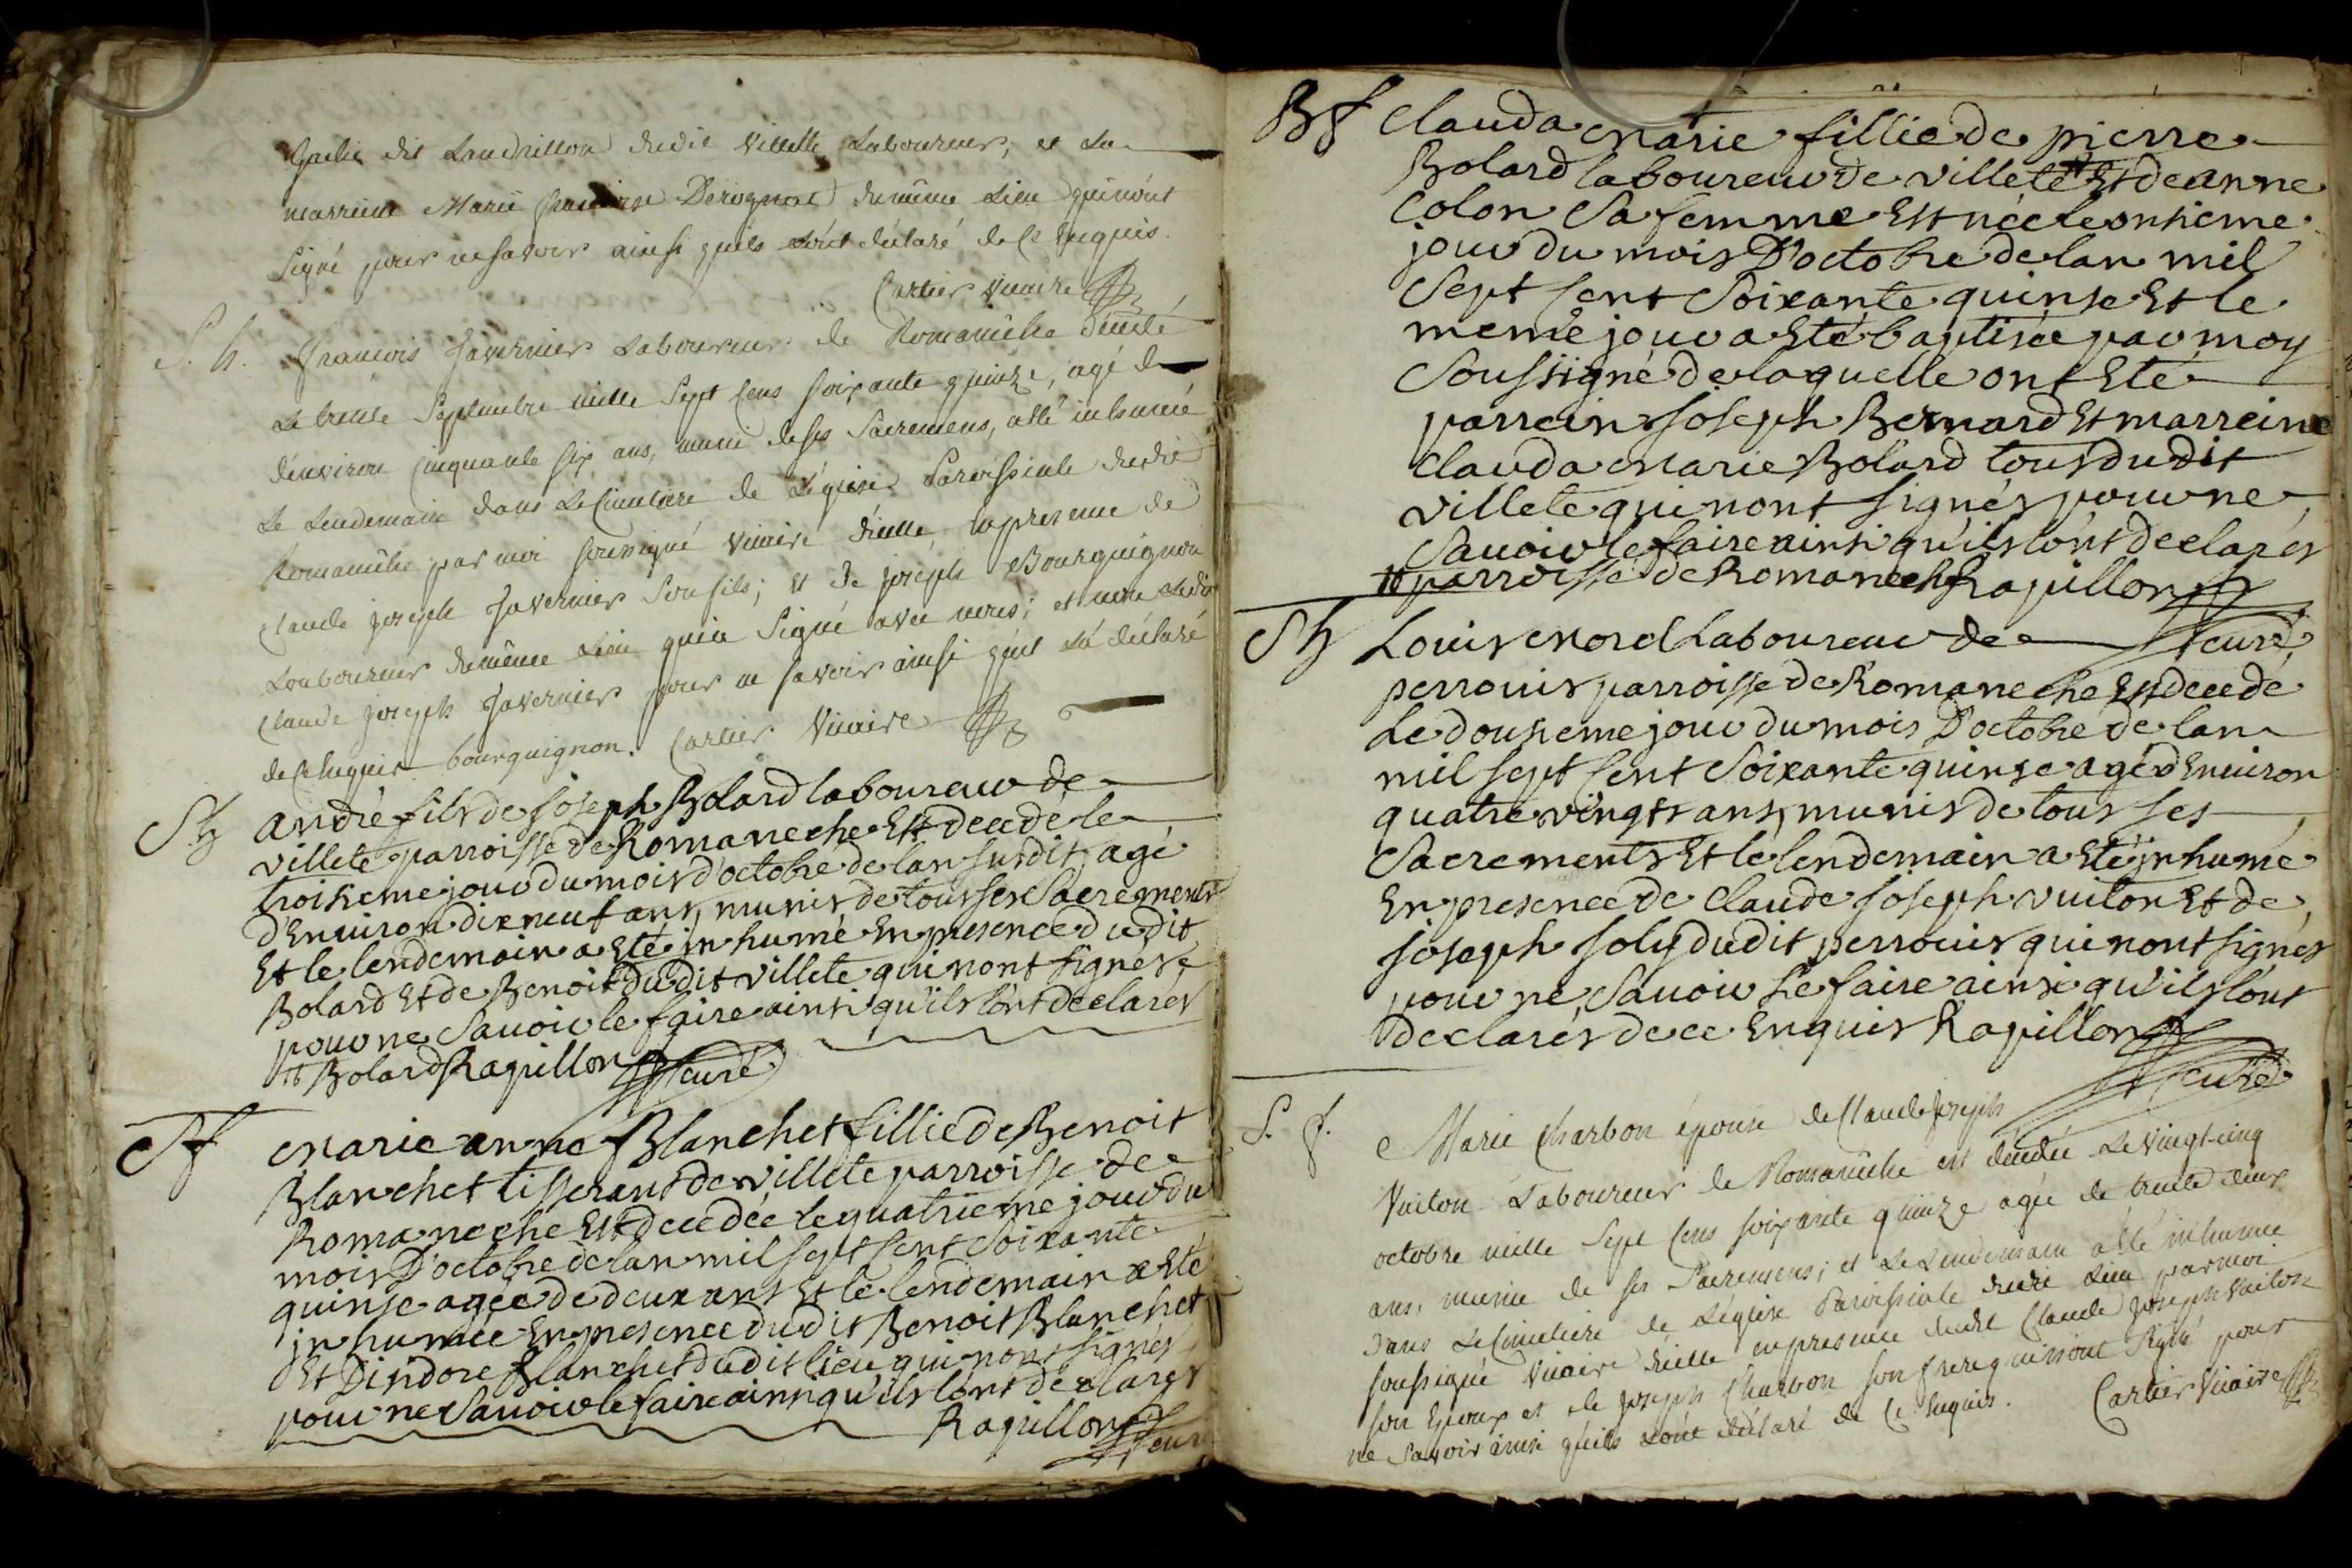 dit Landrillon dudit Villette Laboureur; et La
marreine Marie françoise du même Lieu qui n'ont
signé pour ne savoir ainsi qu'ils L'ont déclaré de Ce Enquis.
Cartier Vicaire
S. h. françois Javernier Laboureur de Romanêche décédé
Le trente Septembre mille Sept Cens soixante quinze, agé de
d'environ Cinquante six ans, muni de ses Sacremens, a été inhumé
Le Lendemain dans Le Cimetiere de L'église Paroissiale dudit
Romanêche par moi soussigné Vicaire d'icelle, en presence de
Claude joseph Javernier Son fils; et de joseph Bourguignon
Laboureur du même Lieu qui a Signé avec nous; et non Ledit
Claude joseph Javernier pour ne savoir ainsi qu'il L'a déclaré
de Ce Enquis. bourguignon. Cartier Vicaire
Sh andré fils de joseph Bolard laboureur de
villete parroisse de Romaneche Est decedé le
troisieme jour du mois d'octobre de lan susdit, agé
d'Environ dix neuf ans, munis de tous ses Sacrements
Et le lendemain a Eté inhumé En presence dudit
Bolard Et de Benoit dudit villete qui nont signés
pour ne Savoir le faire ainsi qu'ils lont declarés
# Bolard Rapillon curé
Sf Marie anne Blanchet fillie de Benoit
Blanchet tisserant de villete parroisse de
Romaneche Est decedée le quatrieme jour du
mois D'octobre de lan mil sept sent Soixante
quinse agée de deux ans Et le lendemain a Eté
inhumée En presence dudit Benoit Blanchet
Et Disidore Blanchet dudit lieu qui nont signés
pour ne Savoir le faire ainsi qu'ils lont declarés
Rapillon curé
Bf Clauda Marie fillie de pierre
Bolard laboureur de villete # Et de anne
Colon Sa femme Est née le onsieme
jour du mois D'octobre de lan mil
Sept Sent Soixante quinse Et le
meme jour a Eté baptisée par moy
Soussigné de laquelle ont Eté
parrein joseph Bernard Et marreine
Clauda Marie Bolard tous dudit
villete qui nont signés pour ne
Savoir le faire ainsi qu'ils lont declarés
# parroisse de Romaneche Rapillon
curé
Sh Louis Morel Laboureur de
perrouis parroisse de Romaneche Est decedé
Le dousieme jour du mois D'octobre de lan
mil sept sent Soixante quinse agé d'Environ
quatre vingts ans, munis de tous ses
Sacrements Et le lendemain a Eté inhumé
En presence de Claude joseph vuiton Et de
joseph joly dudit perrouis qui nont signés
pour ne Savoir Le faire ainsi qu'ils lont
declarés de ce Enquis Rapillon
curé
S. f. Marie Charbon épouse de Claude joseph
Vuiton Laboureur de Romanêche est décédée Le vingt-cinq
octobre mille Sept Cens soixante quinze agée de trente deux
ans, munie de ses Sacremens; et Le Lendemain a été inhumée
dans Le Cimetiere de L'église Paroissiale dudit Lieu par moi
soussigné Vicaire d'icelle en presence dudit Claude joseph Vuiton
son Epoux et de joseph Charbon son frere qui n'ont Signé pour
ne Savoir ainsi qu'ils L'ont déclaré de Ce Enquis. Cartier Vicaire